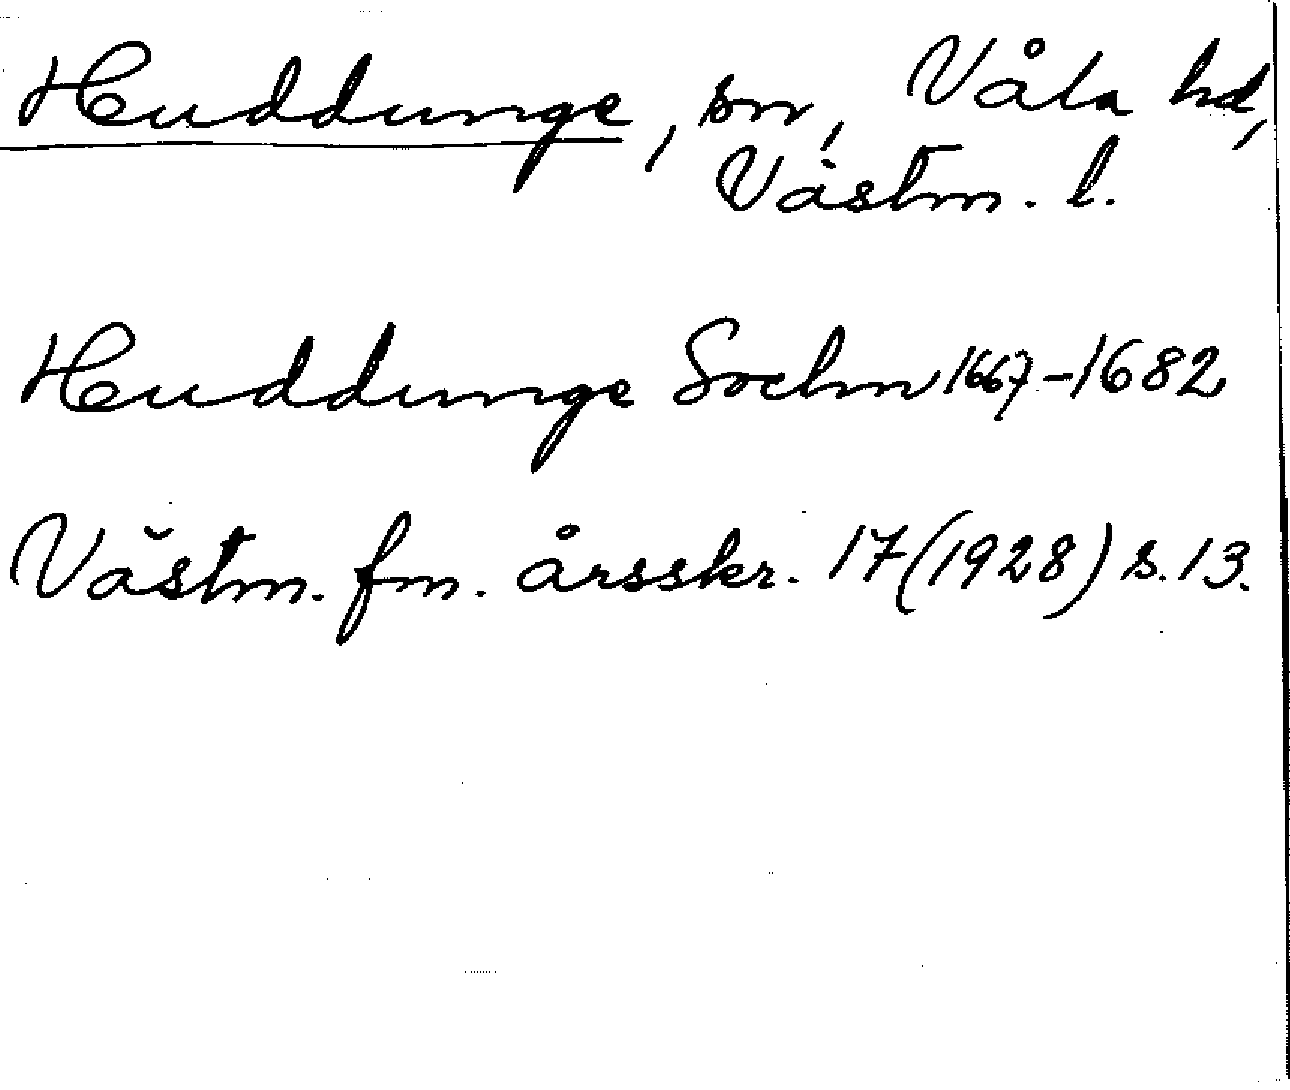 Huddunge, sn, Våla hd,
Västm. l.
Huddunge Sochn 1667-1682
Västm. fm. årsskr. 17 (1928) s. 13.